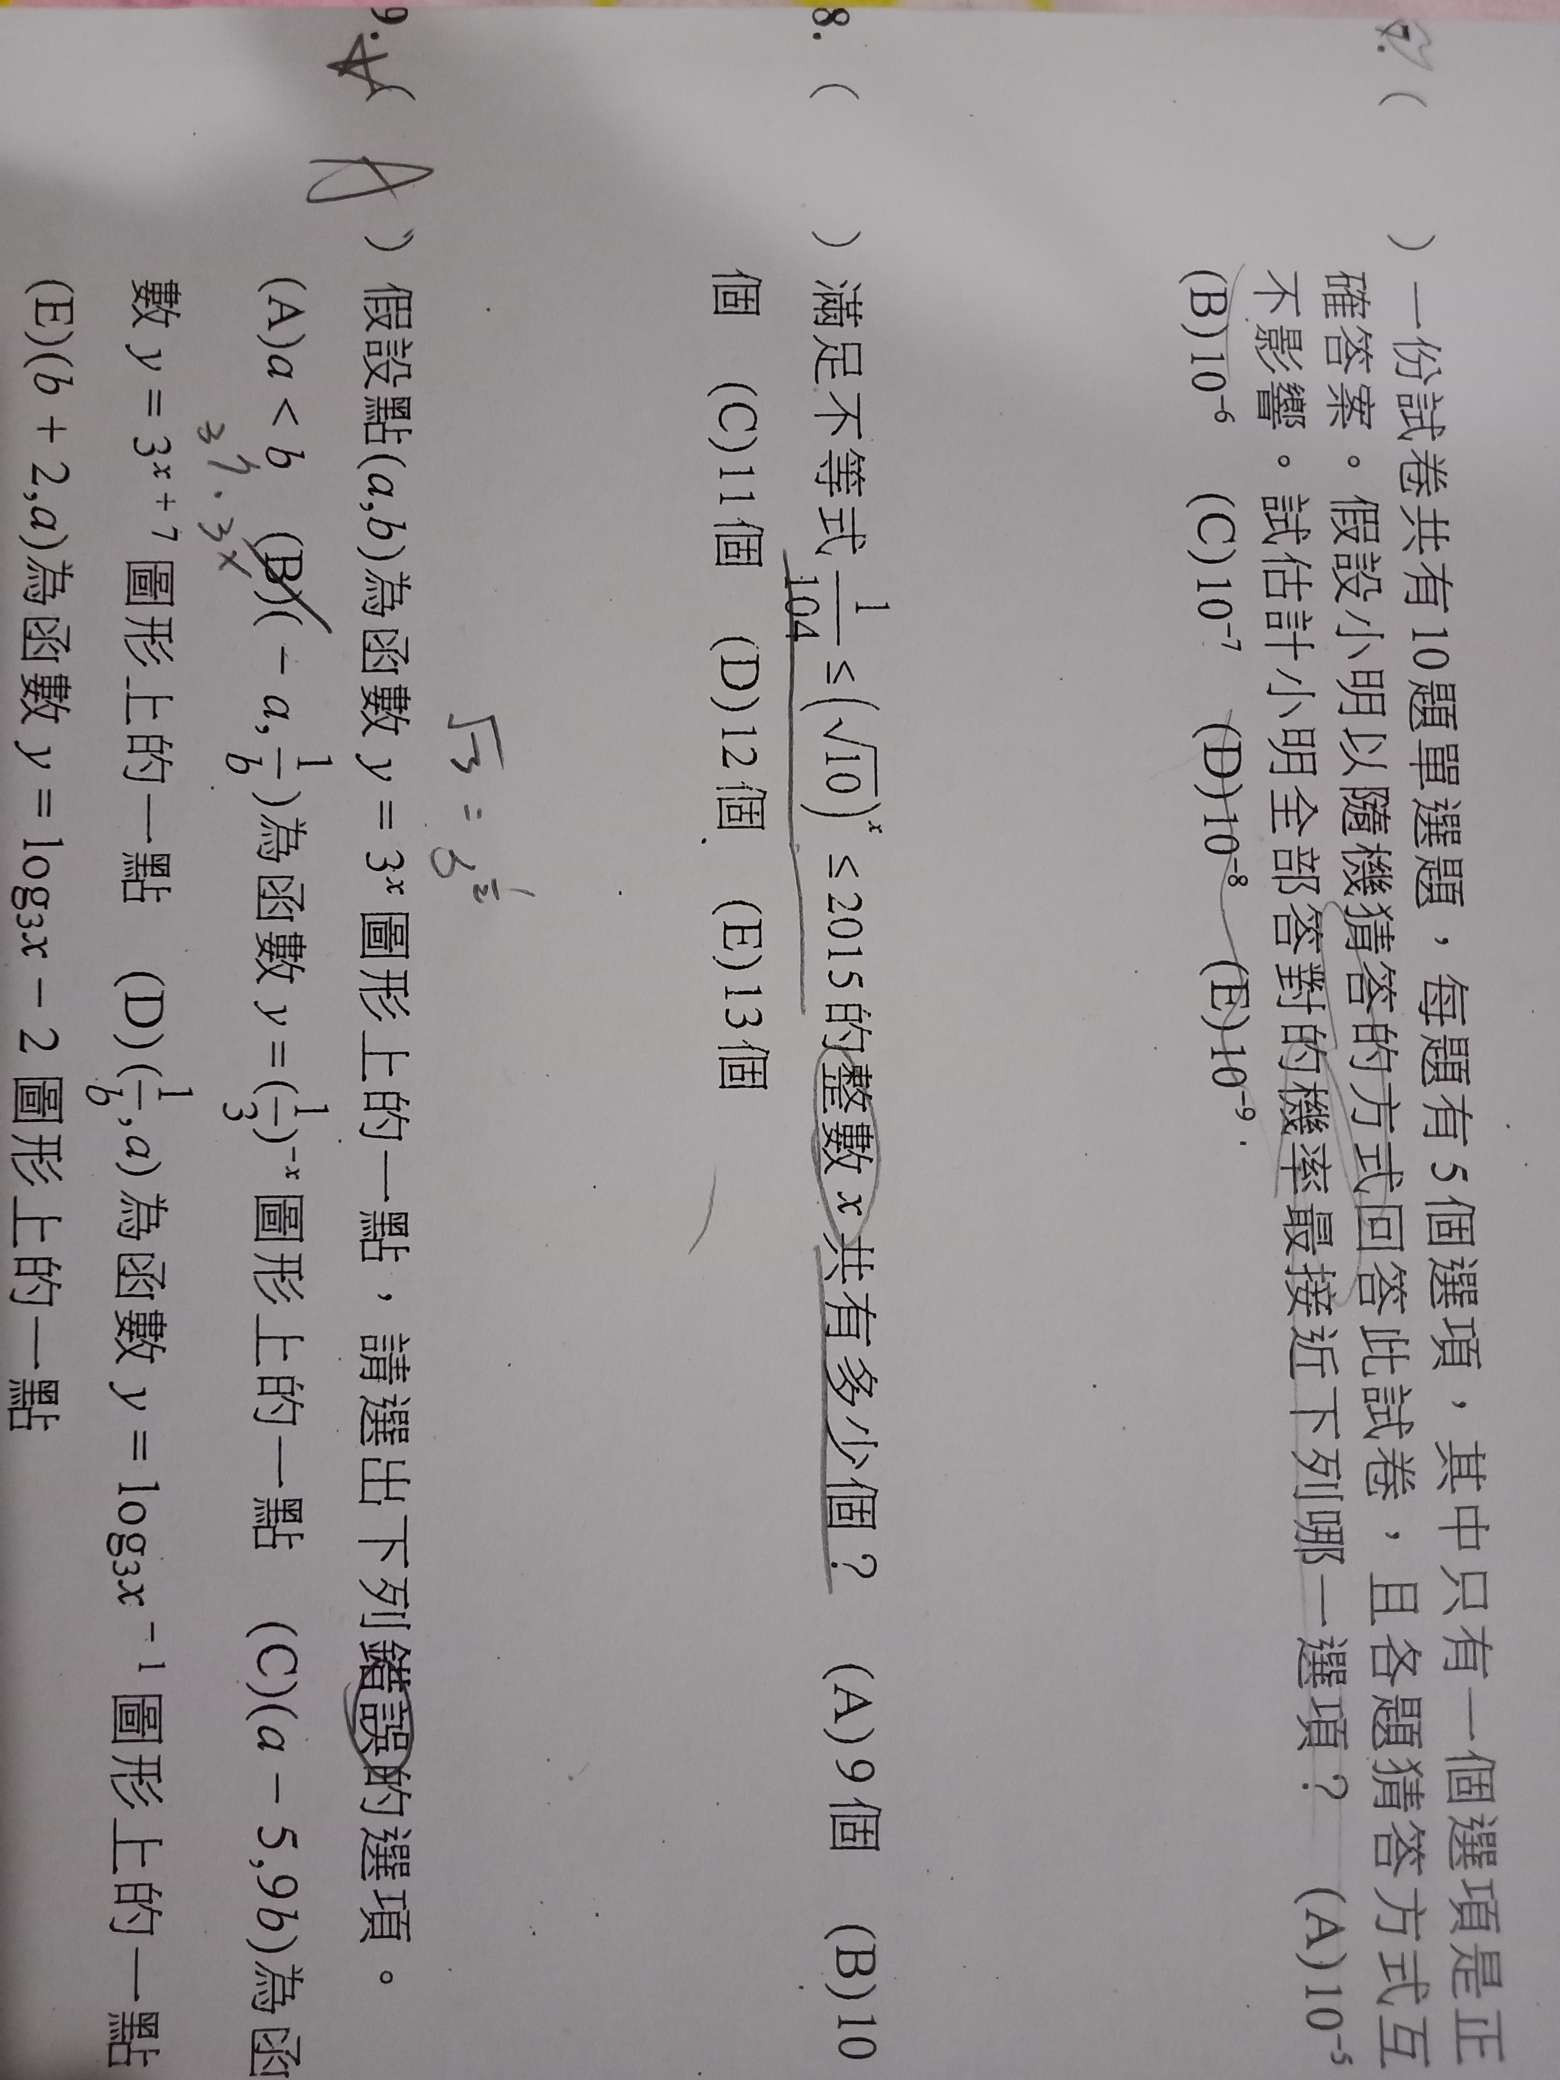 7. ( ) 一份試卷共有10題單選題，每題有5個選項，其中只有一個選項是正
確答案。假設小明以隨機猜答的方式回答此試卷，且各題猜答方式互
不影響。試估計小明全部答對的機率最接近下列哪一選項？ (A)10⁻⁵
(B)10⁻⁶ (C)10⁻⁷ (D)10⁻⁸ (E)10⁻⁹.
8. ( ) 滿足不等式 1/104 ≤ (√10)ˣ ≤ 2015的整數 x 共有多少個？ (A)9個 (B)10
個 (C)11個 (D)12個 (E)13個
9. ( ) 假設點(a,b)為函數 y = 3ˣ 圖形上的一點，請選出下列錯誤的選項。
(A)a < b (B)(－a,1/b)為函數 y = (1/3)⁻ˣ 圖形上的一點 (C)(a－5,9b)為函
3⁷·3ˣ
數 y = 3ˣ⁺⁷ 圖形上的一點 (D)(1/b,a)為函數 y = log₃x⁻¹ 圖形上的一點
(E)(b + 2,a)為函數 y = log₃x－2 圖形上的一點